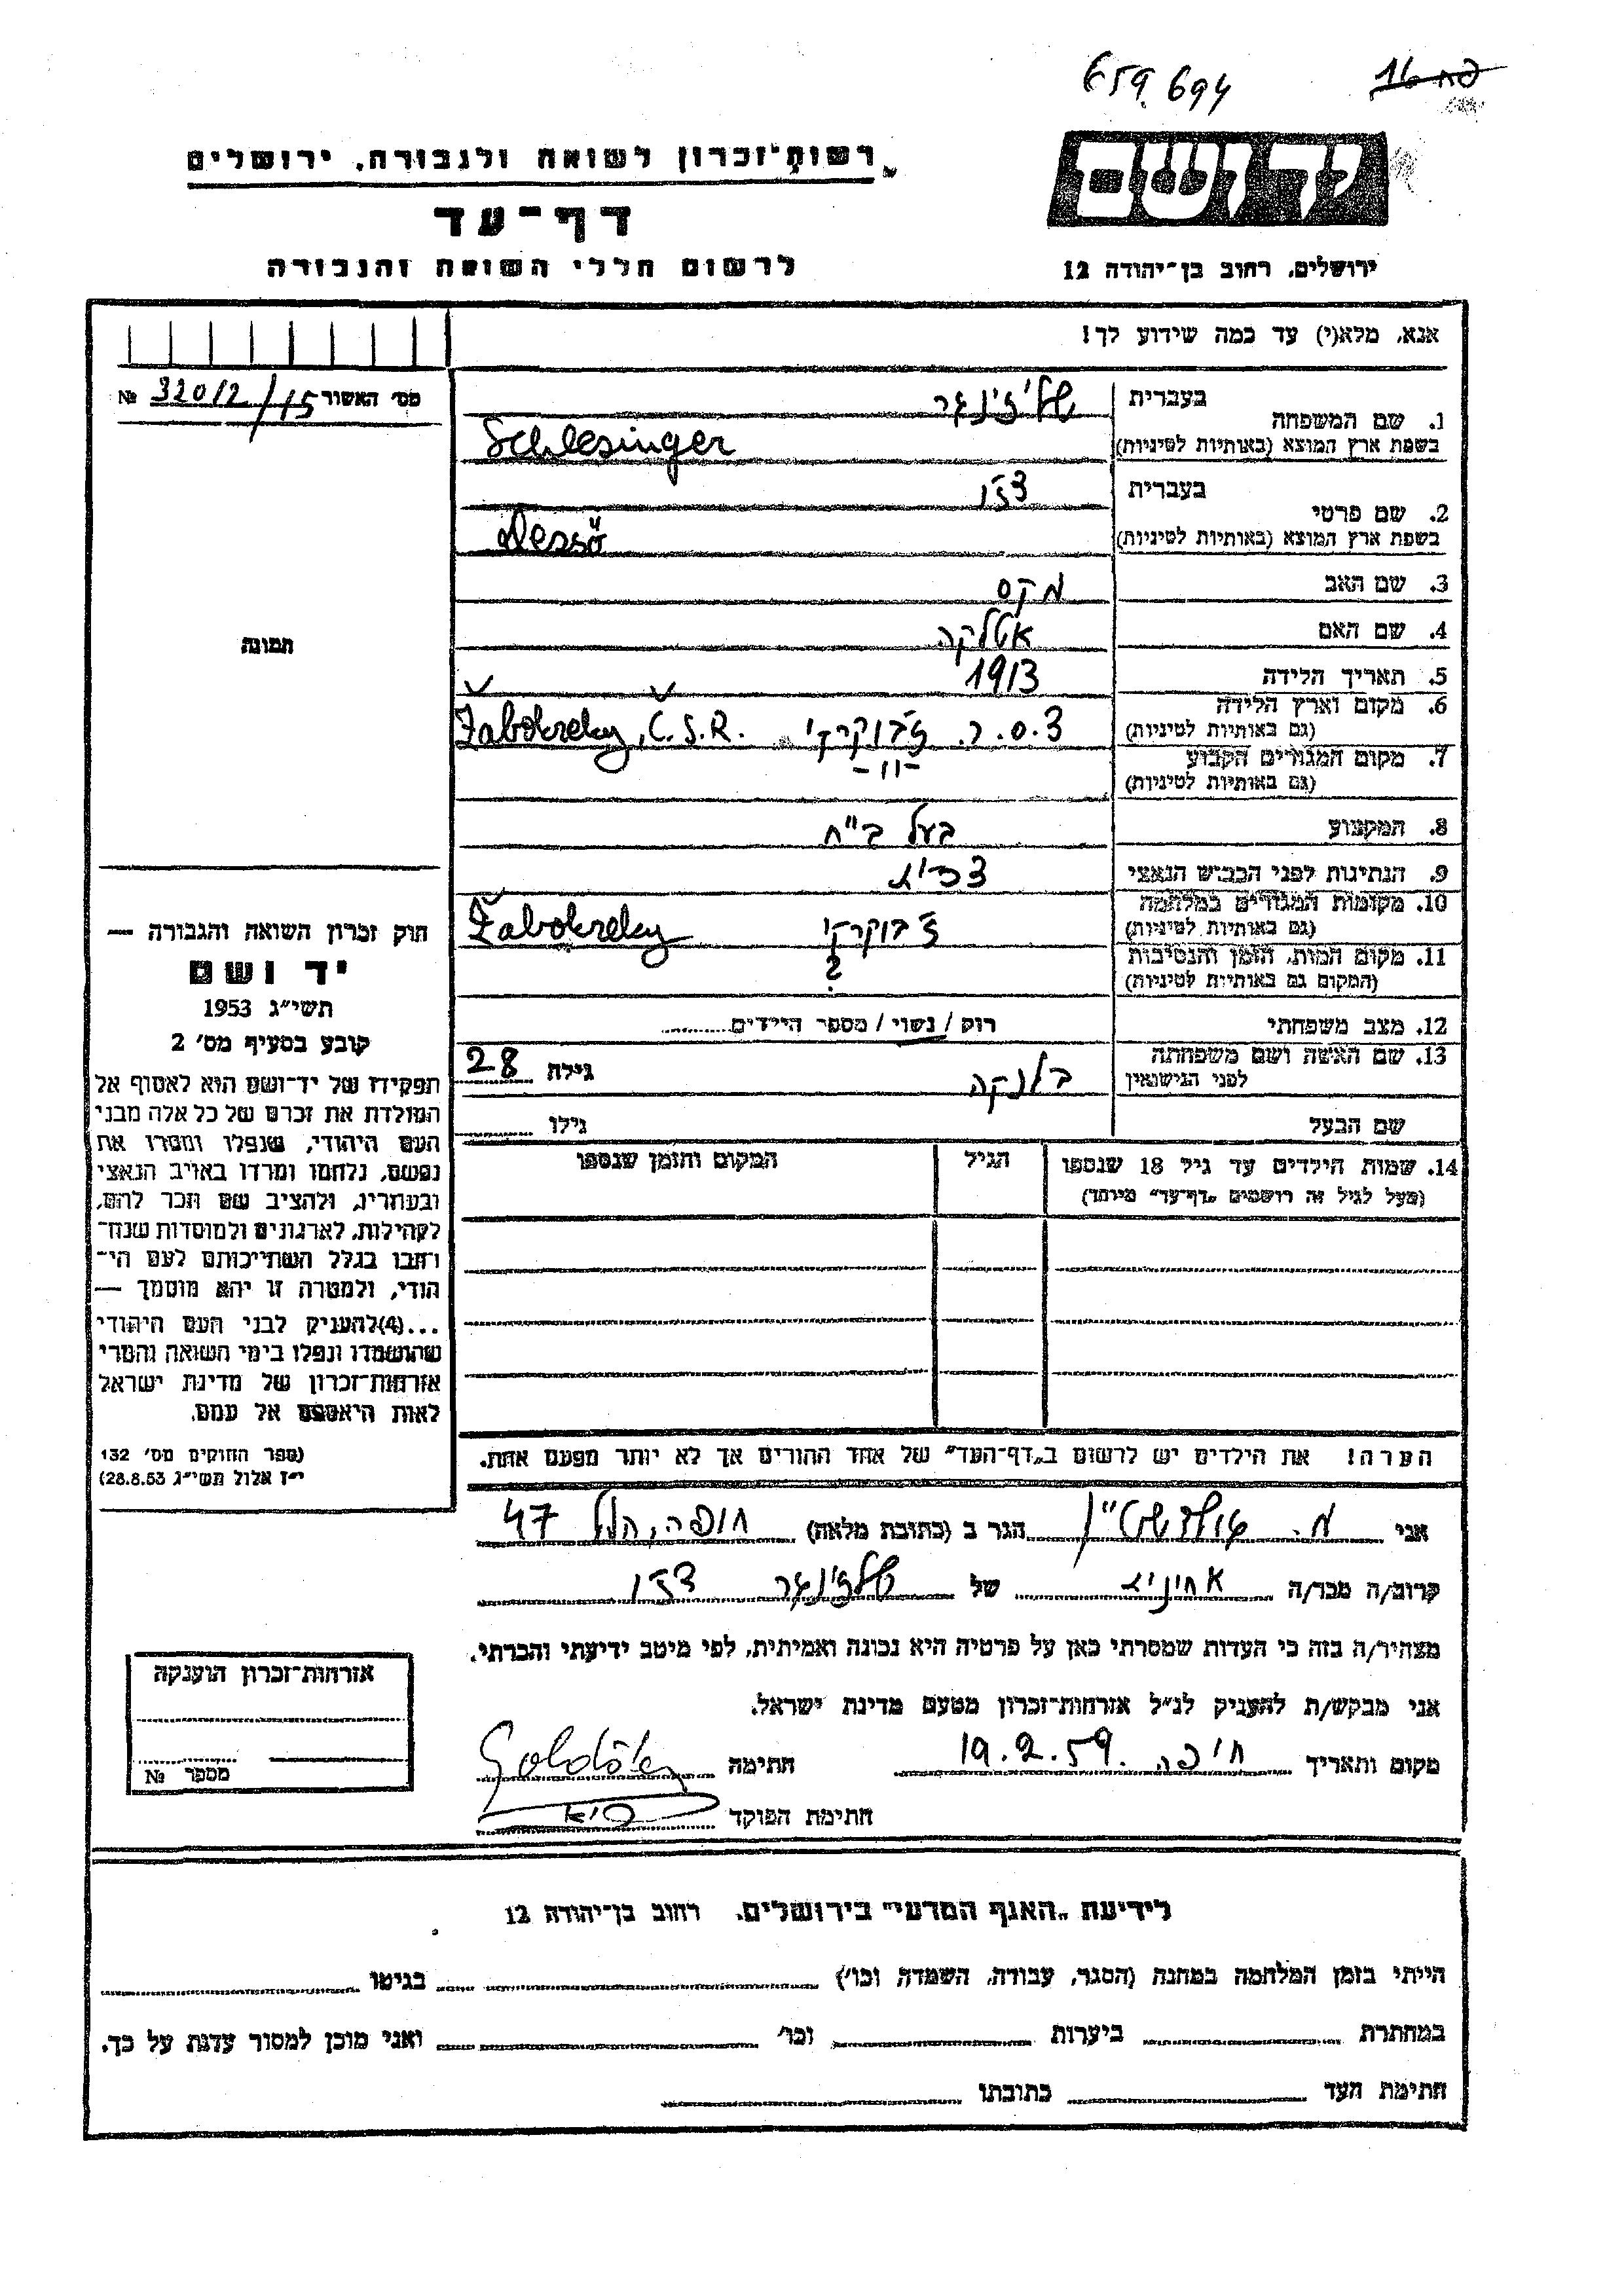 659.694
פח 16
רשות־זכרון לשואה ולגבורה, ירושלים
יד ושם
דף־עד
לרשום חללי השואה והגבורה
ירושלים, רחוב בן־יהודה 12
אנא, מלא(י) עד כמה שידוע לך!
מס׳ האשור 320/2/15 №
1. שם המשפחה בעברית שלזינגר
בשפת ארץ המוצא (באותיות לטיניות) Schlesinger
2. שם פרטי בעברית דזו
בשפת ארץ המוצא (באותיות לטיניות) Dessö
3. שם האב מקס
4. שם האם אטלקה
5. תאריך הלידה 1913
6. מקום וארץ הלידה
(גם באותיות לטיניות) צ.ס.ר. ז׳בוקרקי Žabokreky, C.S.R.
7. מקום המגורים הקבוע -״-
(גם באותיות לטיניות)
8. המקצוע בעל ב״ח
9. הנתינות לפני הכבוש הנאצי צכית
10. מקומות המגורים במלחמה
(גם באותיות לטיניות) ז׳בוקרקי Žabokreky
11. מקום המות, הזמן והנסיבות ?
(המקום גם באותיות לטיניות)
12. מצב משפחתי רוק / נשוי / מספר הילדים
13. שם האשה ושם משפחתה
לפני הנישואין בלנקה גילה 28
שם הבעל גילו
14. שמות הילדים עד גיל 18 שנספו הגיל המקום והזמן שנספו
(מעל לגיל זה רושמים „דף־עד״ מיוחד)
הערה! את הילדים יש לרשום ב„דף־העד״ של אחד ההורים אך לא יותר מפעם אחת.
תמונה
חוק זכרון השואה והגבורה —
יד ושם
תשי״ג 1953
קובע בסעיף מס׳ 2
תפקידו של יד־ושם הוא לאסוף אל
המולדת את זכרם של כל אלה מבני
העם היהודי, שנפלו ומסרו את
נפשם, נלחמו ומרדו באויב הנאצי
ובעוזריו, ולהציב שם וזכר להם,
לקהילות, לארגונים ולמוסדות שנח־
רבו בגלל השתייכותם לעם הי־
הודי, ולמטרה זו יהא מוסמך —
...(4)להעניק לבני העם היהודי
שהושמדו ונפלו בימי השואה והמרי
אזרחות־זכרון של מדינת ישראל
לאות היאספם אל עמם.
(ספר החוקים מס׳ 132
י״ז אלול תשי״ג 28.8.53)
אני מ. גולדשטיין הגר ב (כתובת מלאה) חיפה, הלל 47
קרוב/ה מכר/ה אחינית של שלזינגר דזו
מצהיר/ה בזה כי העדות שמסרתי כאן על פרטיה היא נכונה ואמיתית, לפי מיטב ידיעתי והכרתי.
אני מבקש/ת להעניק לנ״ל אזרחות־זכרון מטעם מדינת ישראל.
מקום ותאריך חיפה 19.2.59. חתימה
חתימת הפוקד
אזרחות־זכרון הוענקה
מספר №
לידיעת „האגף המדעי״ בירושלים, רחוב בן־יהודה 12
הייתי בזמן המלחמה במחנה (הסגר, עבודה, השמדה וכו׳) בגיטו
במחתרת ביערות וכו׳ ואני מוכן למסור עדות על כך.
חתימת העד כתובתו